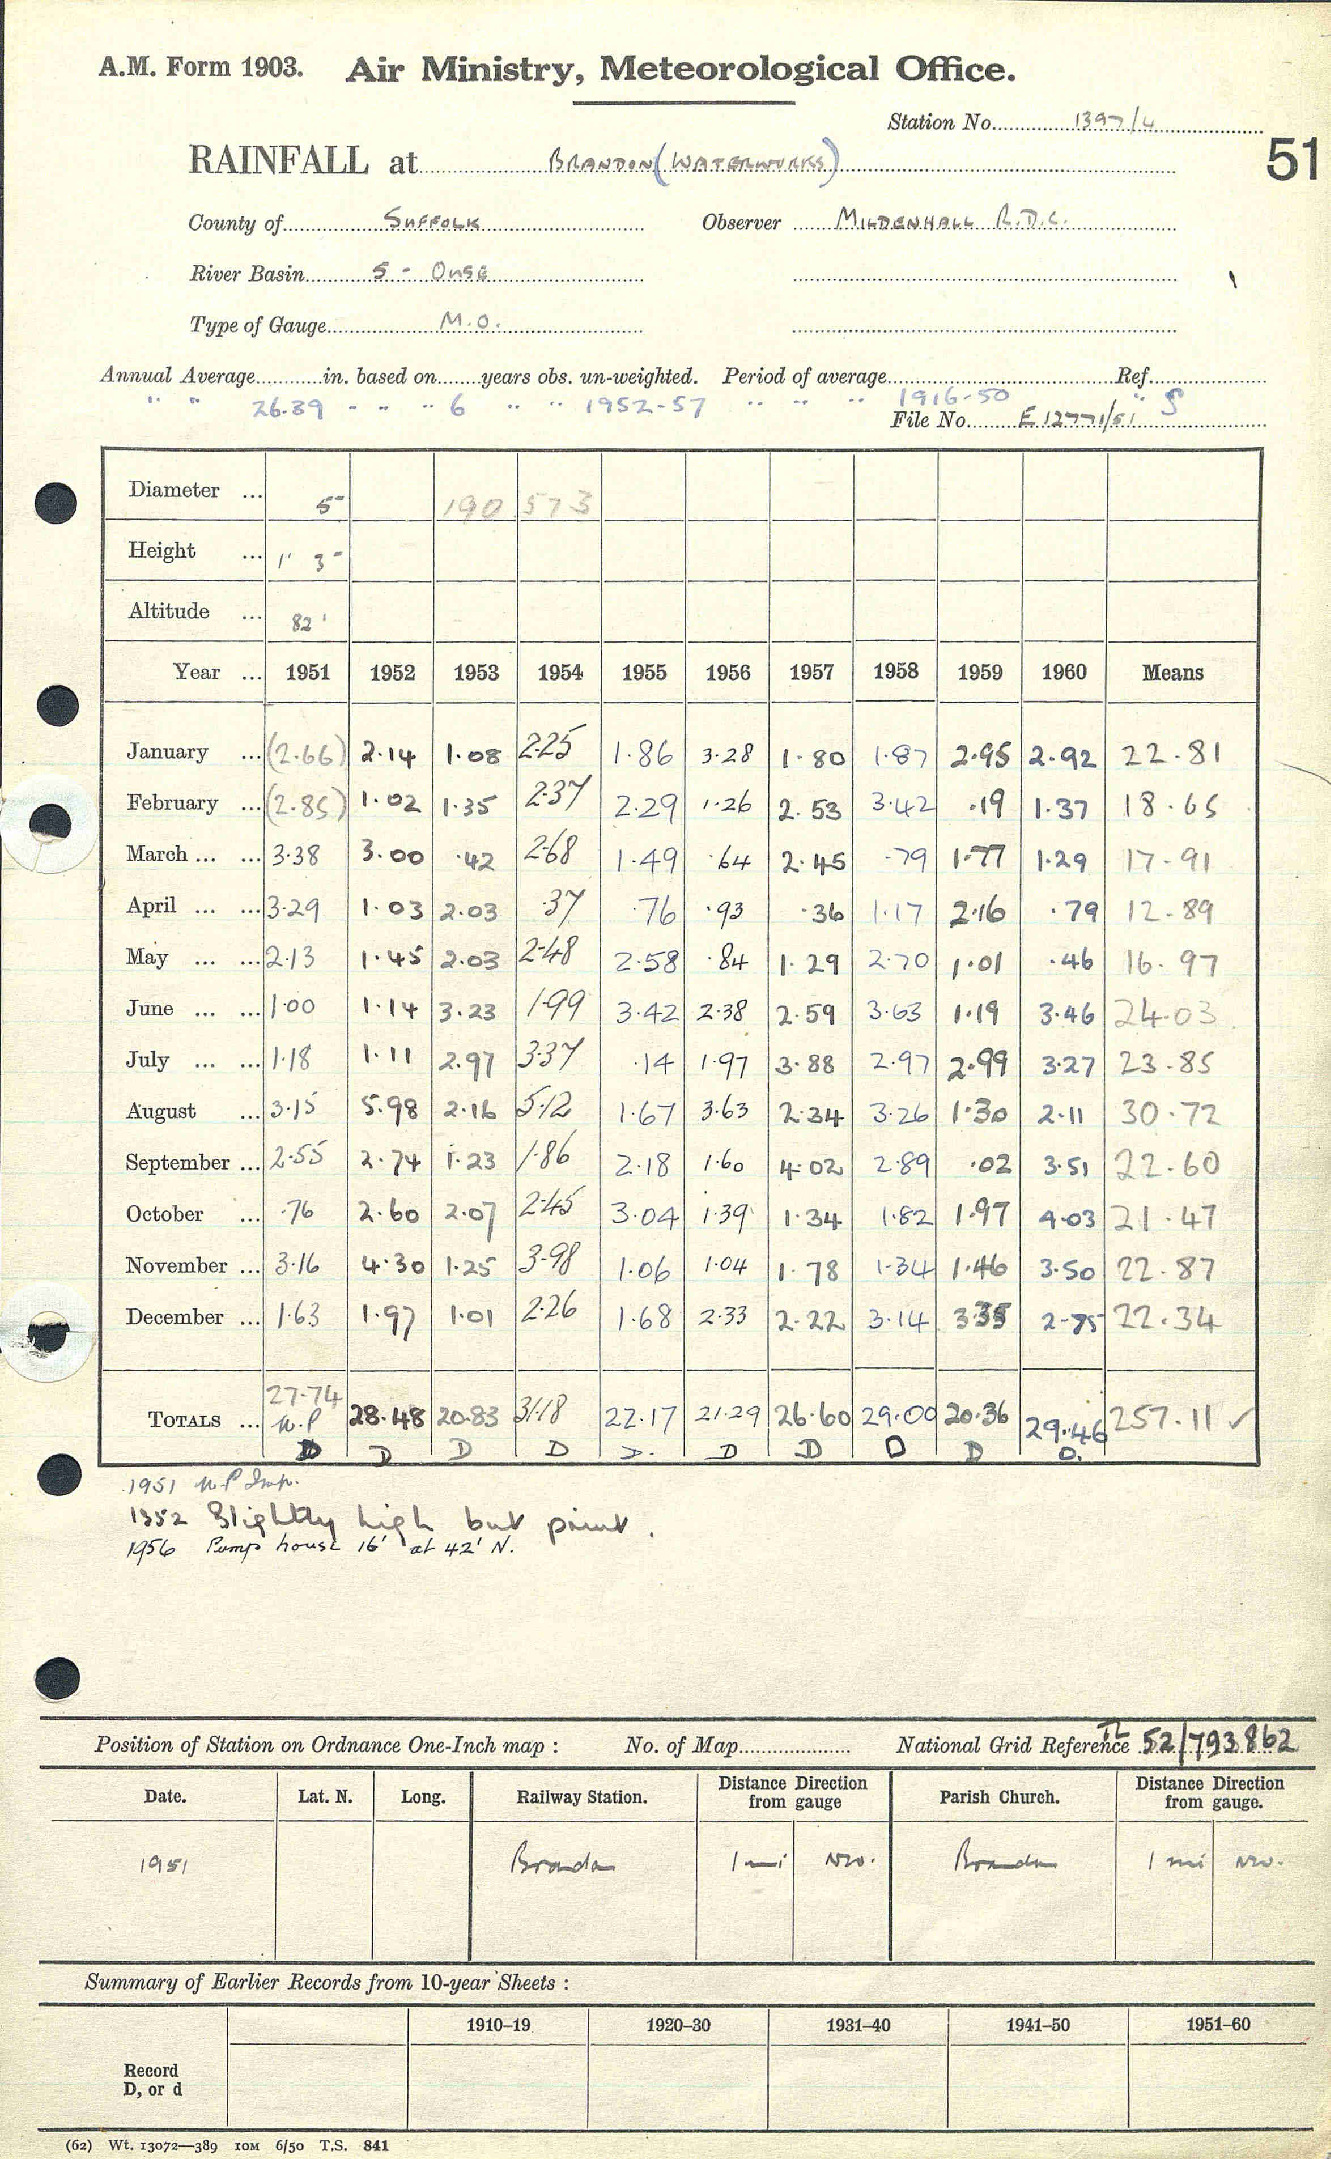 A.M. Form 1903. Air Ministry, Meteorological Office.
Station No. 1397/4
RAINFALL at BRANDON (WATERWORKS)
51
County of SUFFOLK Observer MILDENHALL R.D.C.
River Basin 5 - OUSE
Type of Gauge M.O.
Annual Average in. based on years obs. un-weighted. Period of average Ref.
" " 26.39 - " " 6 " " 1952-57 " " " 1916-50 " S
File No. E 12771/51
Diameter ... 5" 190 573
Height ... 1' 3"
Altitude ... 82'
Year ... 1951 1952 1953 1954 1955 1956 1957 1958 1959 1960 Means
January ... (2.66) 2.14 1.08 2.25 1.86 3.28 1.80 1.87 2.95 2.92 22.81
February ... (2.85) 1.02 1.35 2.37 2.29 1.26 2.53 3.42 .19 1.37 18.65
March ... ... 3.38 3.00 .42 2.68 1.49 .64 2.45 .79 1.77 1.29 17.91
April ... ... 3.29 1.03 2.03 .37 .76 .93 .36 1.17 2.16 .79 12.89
May ... ... 2.13 1.45 2.03 2.48 2.58 .84 1.29 2.70 1.01 .46 16.97
June ... ... 1.00 1.14 3.23 1.99 3.42 2.38 2.59 3.63 1.19 3.46 24.03
July ... ... 1.18 1.11 2.97 3.37 .14 1.97 3.88 2.97 2.99 3.27 23.85
August ... 3.15 5.98 2.16 5.12 1.67 3.63 2.34 3.26 1.30 2.11 30.72
September ... 2.55 2.74 1.23 1.86 2.18 1.60 4.02 2.89 .02 3.51 22.60
October ... .76 2.60 2.07 2.45 3.04 1.39 1.34 1.82 1.97 4.03 21.47
November ... 3.16 4.30 1.25 3.98 1.06 1.04 1.78 1.34 1.46 3.50 22.87
December ... 1.63 1.97 1.01 2.26 1.68 2.33 2.22 3.14 3.35 2.75 22.34
TOTALS ... 27.74 28.48 20.83 31.18 22.17 21.29 26.60 29.00 20.36 29.46 257.11 ✓
n.P
D D D D D. D D D D D.
1951 n.P Imp.
1952 Slightly high but print.
1956 Pump house 16' at 42' N.
Position of Station on Ordnance One-Inch map : No. of Map National Grid Reference TL 52/793862
Date. Lat. N. Long. Railway Station. Distance Direction from gauge Parish Church. Distance Direction from gauge.
1951 Brandon 1 mi NW. Brandon 1 mi NW.
Summary of Earlier Records from 10-year Sheets :
1910–19 1920–30 1931–40 1941–50 1951–60
Record
D, or d
(62) Wt. 13072—389 10M 6/50 T.S. 841